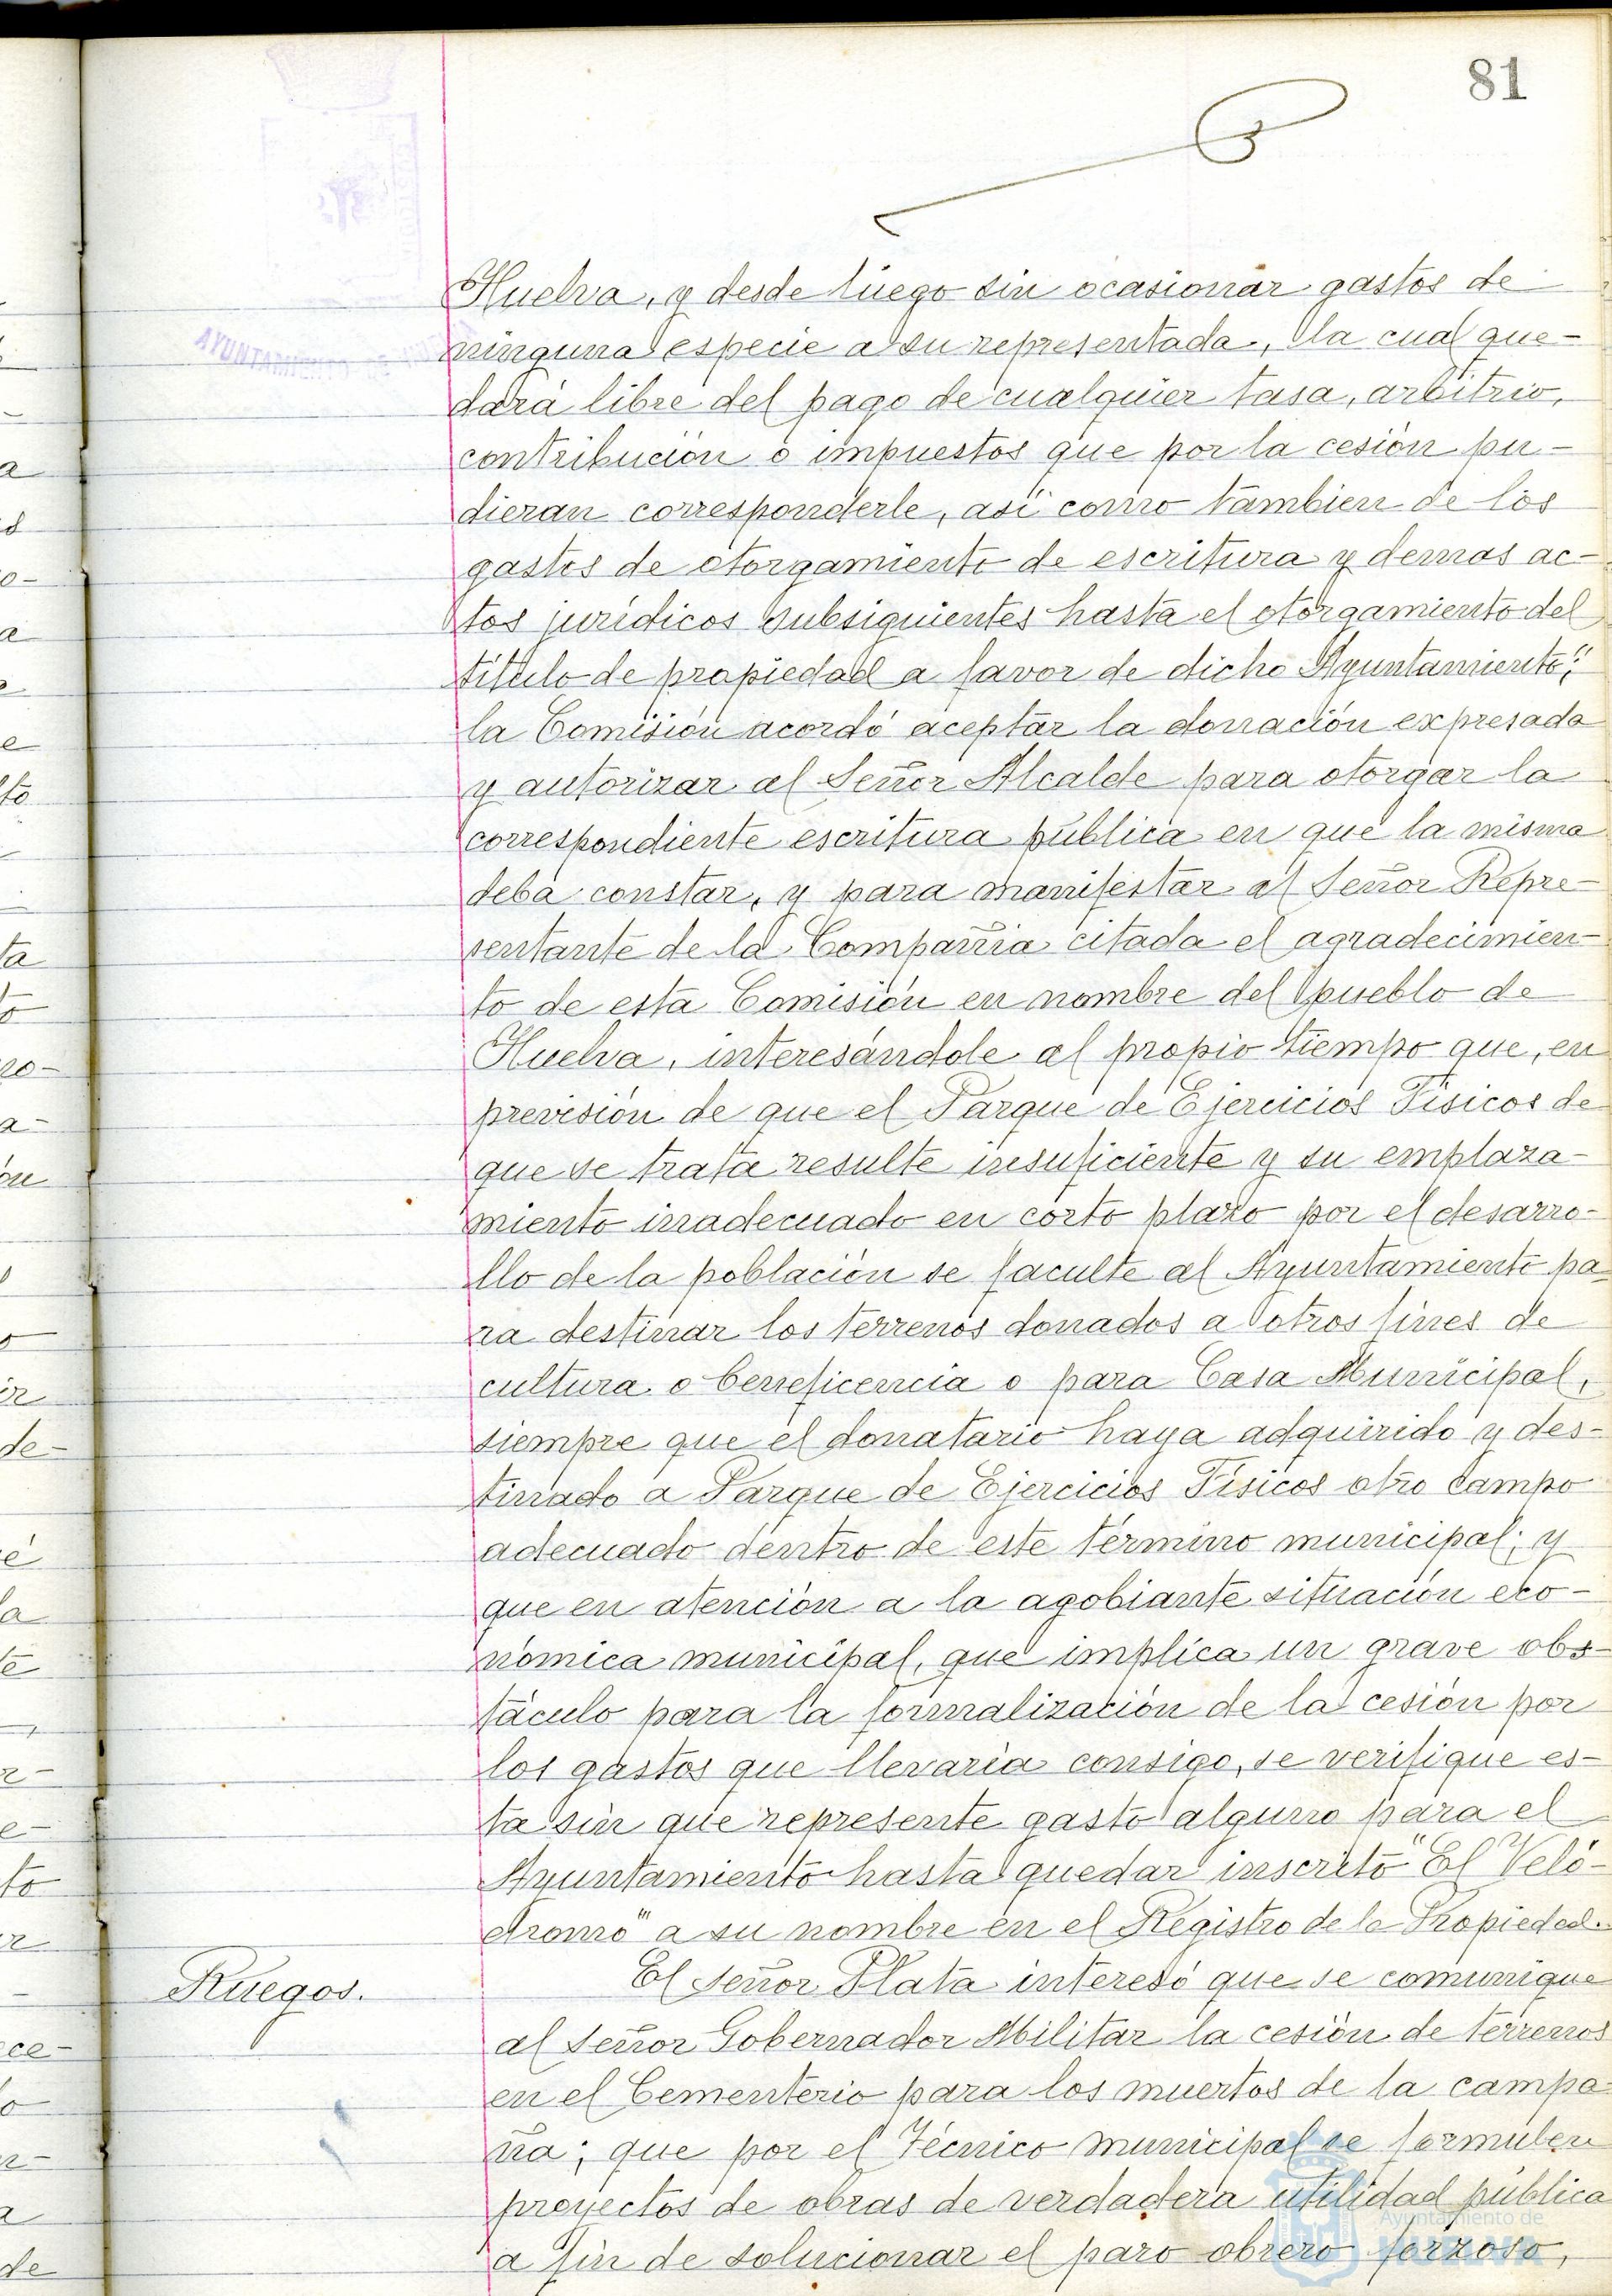 81
Huelva, y desde luego sin ocasionar gastos de
ninguna especie a su representada, la cual que-
dará libre del pago de cualquier tasa, arbitrio,
contribución o impuestos que por la cesión pu-
dieran corresponderle, así como tambien de los
gastos de otorgamiento de escritura y demas ac-
tos jurídicos subsiguientes hasta el otorgamiento del
título de propiedad a favor de dicho Ayuntamiento";
la Comisión acordó aceptar la donación expresada
y autorizar al Señor Alcalde para otorgar la
correspondiente escritura pública en que la misma
deba constar, y para manifestar al Señor Repre-
sentante de la Compañia citada el agradecimien-
to de esta Comisión en nombre del pueblo de
Huelva, interesándole al propio tiempo que, en
previsión de que el Parque de Ejercicios Físicos de
que se trata resulte insuficiente y su emplaza-
miento inadecuado en corto plazo por el desarro-
llo de la población se faculte al Ayuntamiento pa-
ra destinar los terrenos donados a otros fines de
cultura o beneficencia o para Casa Municipal,
siempre que el donatario haya adquirido y des-
tinado a Parque de Ejercicios Físicos otro campo
adecuado dentro de este término municipal; y
que en atención a la agobiante situación eco-
nómica municipal, que implica un grave obs-
táculo para la formalización de la cesión por
los gastos que llevaría consigo, se verifique es-
ta sin que represente gasto alguno para el
Ayuntamiento hasta quedar inscrito "El Veló-
dromo" a su nombre en el Registro de la Propiedad.
Ruegos.
El señor Plata interesó que se comunique
al señor Gobernador Militar la cesión de terrenos
en el Cementerio para los muertos de la campa-
ña; que por el Técnico municipal se formulen
proyectos de obras de verdadera utilidad pública
a fin de solucionar el paro obrero forzoso,
AYUNTAMIENTO DE
Ayuntamiento de
HUELVA